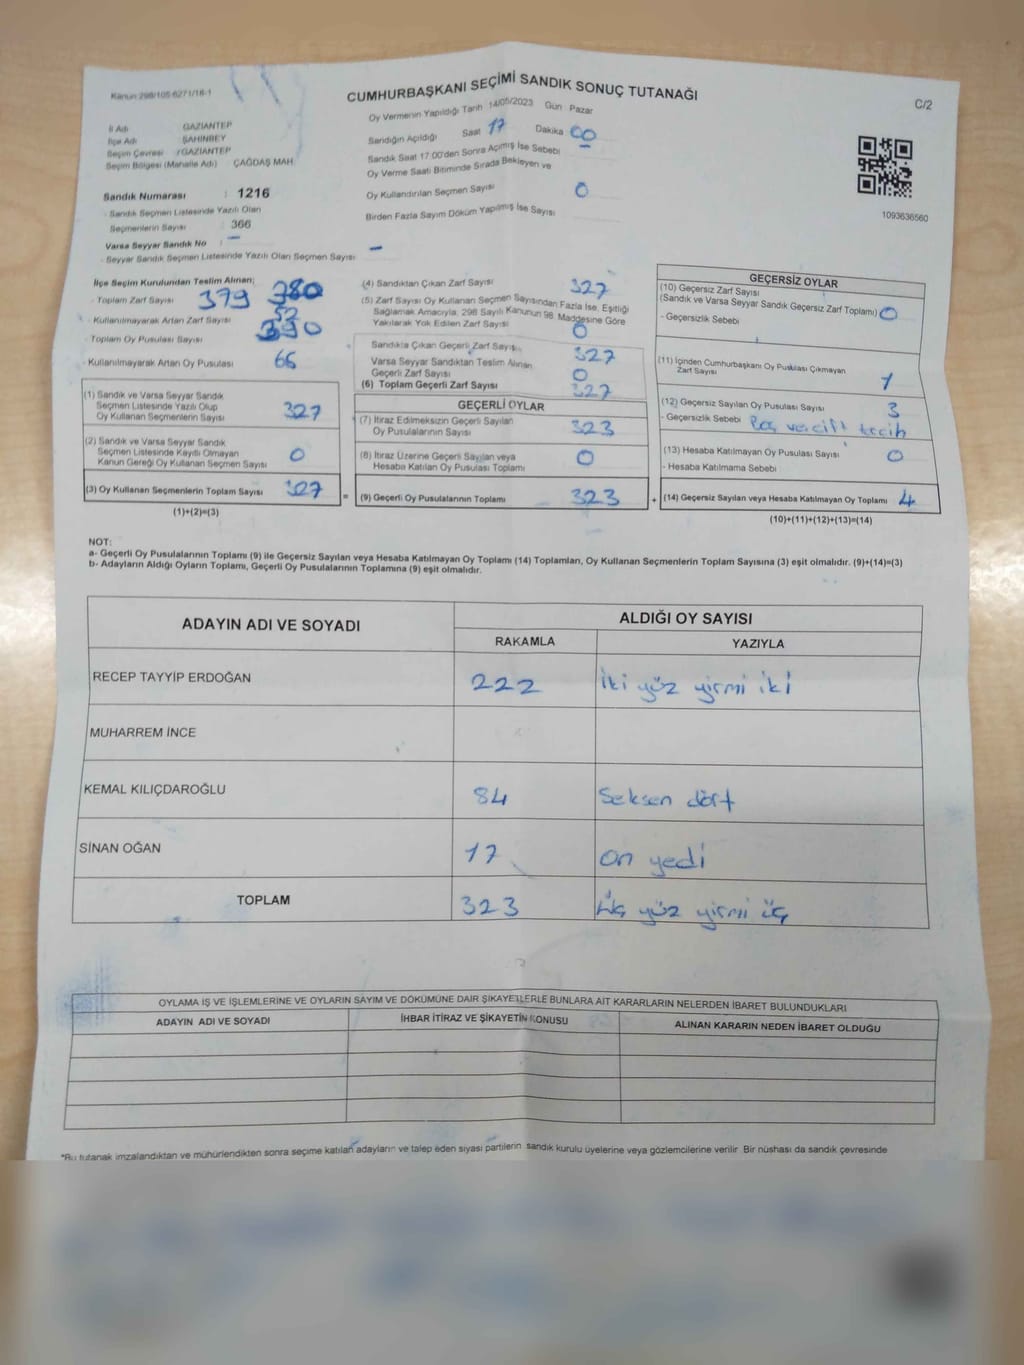 Kanun 298/105-6271/18-1
CUMHURBAŞKANI SEÇİMİ SANDIK SONUÇ TUTANAĞI
C/2
Oy Vermenin Yapıldığı Tarih 14/05/2023 Gün Pazar
Sandığın Açıldığı Saat 17 Dakika 00
Sandık Saat 17:00'den Sonra Açılmış İse Sebebi
Oy Verme Saati Bitiminde Sırada Bekleyen ve
Oy Kullandırılan Seçmen Sayısı 0
Birden Fazla Sayım Döküm Yapılmış İse Sayısı
1093636560
İl Adı GAZİANTEP
İlçe Adı ŞAHİNBEY
Seçim Çevresi /GAZİANTEP
Seçim Bölgesi (Mahalle Adı) ÇAĞDAŞ MAH.
Sandık Numarası : 1216
- Sandık Seçmen Listesinde Yazılı Olan
Seçmenlerin Sayısı : 366
Varsa Seyyar Sandık No : -
- Seyyar Sandık Seçmen Listesinde Yazılı Olan Seçmen Sayısı : -
İlçe Seçim Kurulundan Teslim Alınan;
- Toplam Zarf Sayısı 379 380
- Kullanılmayarak Artan Zarf Sayısı 52
- Toplam Oy Pusulası Sayısı
- Kullanılmayarak Artan Oy Pusulası 66
(1) Sandık ve Varsa Seyyar Sandık
Seçmen Listesinde Yazılı Olup
Oy Kullanan Seçmenlerin Sayısı 327
(2) Sandık ve Varsa Seyyar Sandık
Seçmen Listesinde Kayıtlı Olmayan
Kanun Gereği Oy Kullanan Seçmen Sayısı 0
(3) Oy Kullanan Seçmenlerin Toplam Sayısı 327
(1)+(2)=(3)
(4) Sandıktan Çıkan Zarf Sayısı 327
(5) Zarf Sayısı Oy Kullanan Seçmen Sayısından Fazla İse, Eşitliği
Sağlamak Amacıyla, 298 Sayılı Kanunun 98. Maddesine Göre
Yakılarak Yok Edilen Zarf Sayısı 0
Sandıkta Çıkan Geçerli Zarf Sayısı 327
Varsa Seyyar Sandıktan Teslim Alınan
Geçerli Zarf Sayısı 0
(6) Toplam Geçerli Zarf Sayısı 327
GEÇERLİ OYLAR
(7) İtiraz Edilmeksizin Geçerli Sayılan
Oy Pusulalarının Sayısı 323
(8) İtiraz Üzerine Geçerli Sayılan veya
Hesaba Katılan Oy Pusulası Toplamı 0
= (9) Geçerli Oy Pusulalarının Toplamı 323
GEÇERSİZ OYLAR
(10) Geçersiz Zarf Sayısı
(Sandık ve Varsa Seyyar Sandık Geçersiz Zarf Toplamı) 0
- Geçersizlik Sebebi
(11) İçinden Cumhurbaşkanı Oy Pusulası Çıkmayan
Zarf Sayısı 1
(12) Geçersiz Sayılan Oy Pusulası Sayısı 3
- Geçersizlik Sebebi Boş ve çift tercih
(13) Hesaba Katılmayan Oy Pusulası Sayısı 0
- Hesaba Katılmama Sebebi
+ (14) Geçersiz Sayılan veya Hesaba Katılmayan Oy Toplamı 4
(10)+(11)+(12)+(13)=(14)
NOT:
a- Geçerli Oy Pusulalarının Toplamı (9) ile Geçersiz Sayılan veya Hesaba Katılmayan Oy Toplamı (14) Toplamları, Oy Kullanan Seçmenlerin Toplam Sayısına (3) eşit olmalıdır. (9)+(14)=(3)
b- Adayların Aldığı Oyların Toplamı, Geçerli Oy Pusulalarının Toplamına (9) eşit olmalıdır.
ADAYIN ADI VE SOYADI
ALDIĞI OY SAYISI
RAKAMLA YAZIYLA
RECEP TAYYİP ERDOĞAN 222 İki yüz yirmi iki
MUHARREM İNCE
KEMAL KILIÇDAROĞLU 84 Seksen dört
SİNAN OĞAN 17 On yedi
TOPLAM 323 Üç yüz yirmi üç
OYLAMA İŞ VE İŞLEMLERİNE VE OYLARIN SAYIM VE DÖKÜMÜNE DAİR ŞİKAYETLERLE BUNLARA AİT KARARLARIN NELERDEN İBARET BULUNDUKLARI
ADAYIN ADI VE SOYADI İHBAR İTİRAZ VE ŞİKAYETİN KONUSU ALINAN KARARIN NEDEN İBARET OLDUĞU
*Bu tutanak imzalandıktan ve mühürlendikten sonra seçime katılan adayların ve talep eden siyasi partilerin sandık kurulu üyelerine veya gözlemcilerine verilir. Bir nüshası da sandık çevresinde